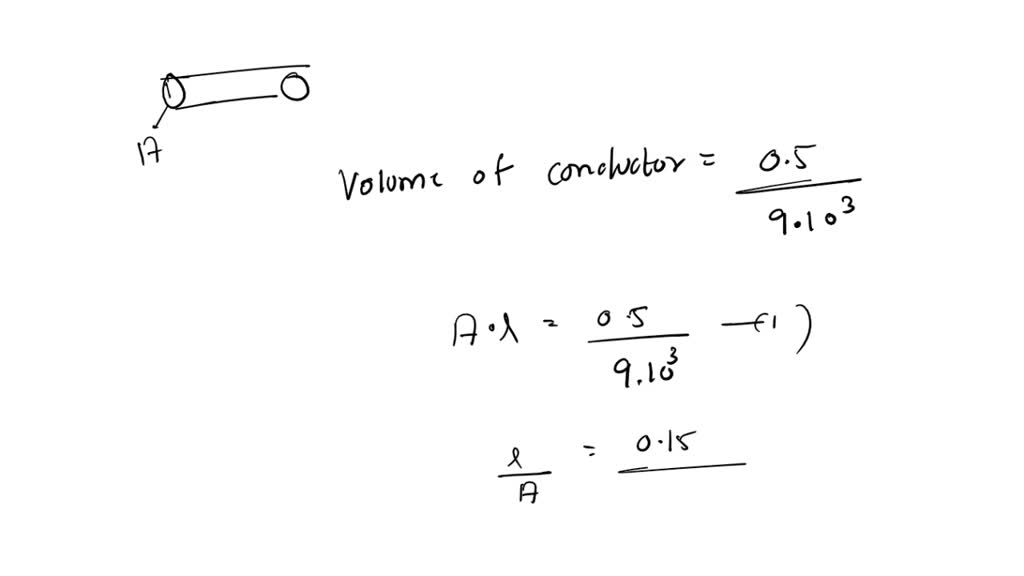 A
Volume of conductor = 0.5 / 9.10³
A.l = 0.5 / 9.10³ —(1)
l / A = 0.15